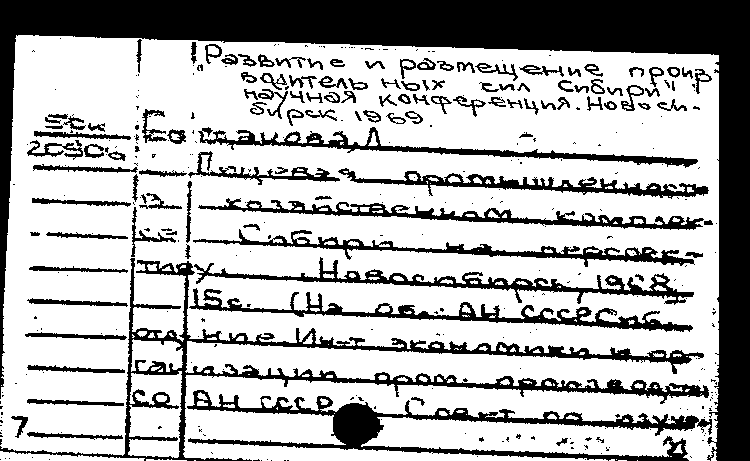 „Развитие и размещение произ-
водительных сил Сибири"
научная конференция. Новоси-
бирск 1969.
5ск
20506
Пищевая промышленность
в хозяйственном комплек-
се Сибири на перспек-
тиву. Новосибирск, 1968.
15с. (На об.: АН СССР Сиб.
отд-ние. Ин-т экономики и ор-
ганизации пром. производства
СО АН СССР. Совет по изуч.
7